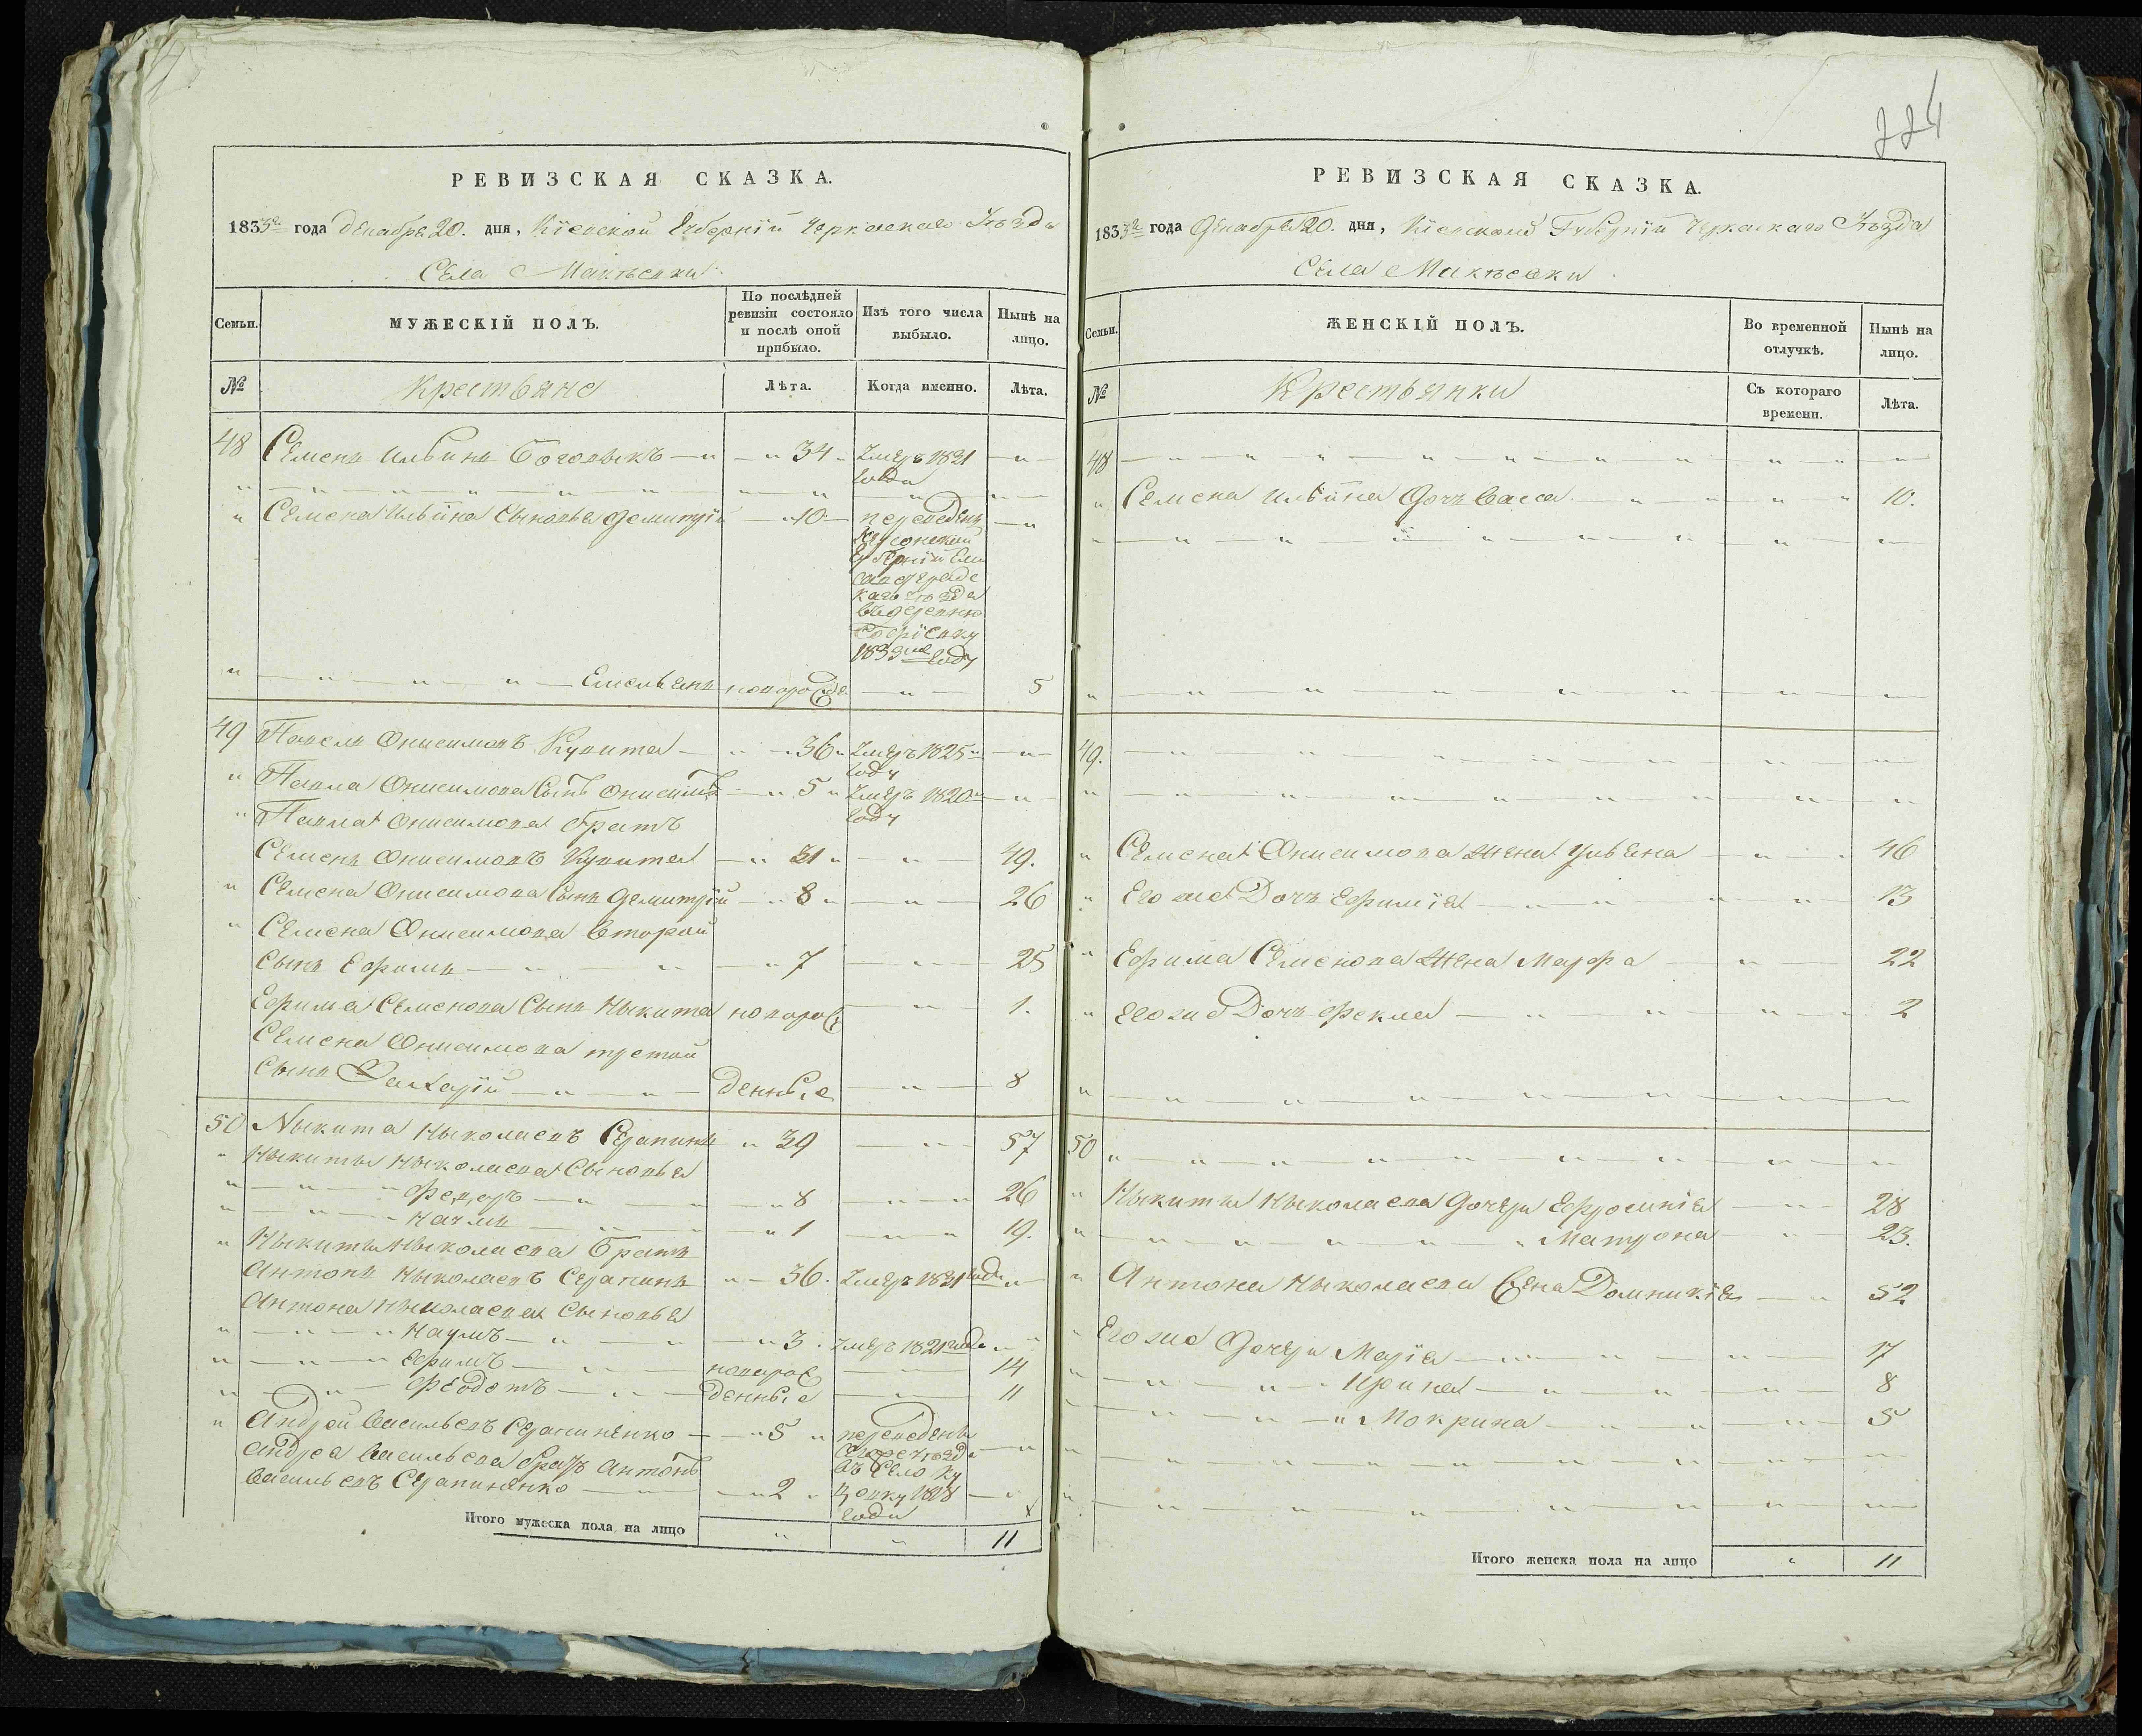 РЕВИЗСКАЯ СКАЗКА.
183 года Декабря 20. дня, Кіевской Губерніи Черкаскаго Уѣзда
Села Макѣевки
Семьи.
МУЖЕСКІЙ ПОЛЪ.
По послѣдней ревизіи состояло и послѣ оной прибыло.
Изъ того числа выбыло.
Нынѣ на лицо.
№
Крестьяне
Лѣта.
Когда именно.
Лѣта.
48 Семенъ Ильинъ 34 Умеръ 1821
года
Семена Ильина Сыновья Демитрій 10 переведенъ
Херсонской
Губерніи
Уѣзда
въ деревню
году
Емельянъ новорожде 5
49 Павелъ Онисимовъ Кувита 36 Умеръ 1825
году
Павла Онисимова Сынъ Онисимъ 5 Умеръ 1820
году
Павла Онисимова братъ
Семенъ Онисимовъ Кувита 31 49.
Семена Онисимова Сынъ Демитрій 8 26
Семена Онисимова второй
Сынъ Ефимъ 7 25
Ефима Семенова Сынъ Ныкита новорож 1.
Семена Онисимова третій
Сынъ Захарій денные 8
50 Ныкита Ныколаевъ 39 57
Ныкиты Ныколаева Сыновья
Федоръ 8 26
Наумъ 1 19.
Ныкиты Ныколаева братъ
Антонъ Ныколаевъ 36. Умеръ 1821 года
Антона Ныколаева Сыновья
Наумъ 3. Умеръ 1821 года
Ефимъ новорож 14
Феодотъ денные 11
Андрей Васильевъ 5 переведены
Андрея Васильева братъ Антонъ
въ Село
Васильевъ 2 1828
года
Итого мужеска пола на лицо 11
РЕВИЗСКАЯ СКАЗКА.
183 года Декабря 20. дня, Кіевской Губерніи Черкаскаго Уѣзда
Села Макѣевки
Семьи.
ЖЕНСКІЙ ПОЛЪ.
Во временной отлучкѣ.
Нынѣ на лицо.
№
Крестьянки
Съ котораго времени.
Лѣта.
48
Семена Ильина Дочь Васса 10.
49.
Семена Онисимова Жена Ульяна 46
Его же Дочь Ефимія 13
Ефима Семенова Жена Марфа 22
Его же Дочь Фекла 2
50
Ныкиты Ныколаева Дочери Ефросинія 28
Матрона 23.
Антона Ныколаева Жена Домникія 52
Его же Дочери Марія 17
Ирина 8
Мокрина 5
Итого женска пола на лицо 11